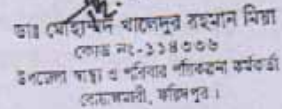 ডাঃ মোহাম্মদ খালেদুর রহমান মিয়া
কোড নং-১১৪৩৩৬
উপজেলা স্বাস্থ্য ও পরিবার পরিকল্পনা কর্মকর্তা
বোয়ালমারী, ফরিদপুর।